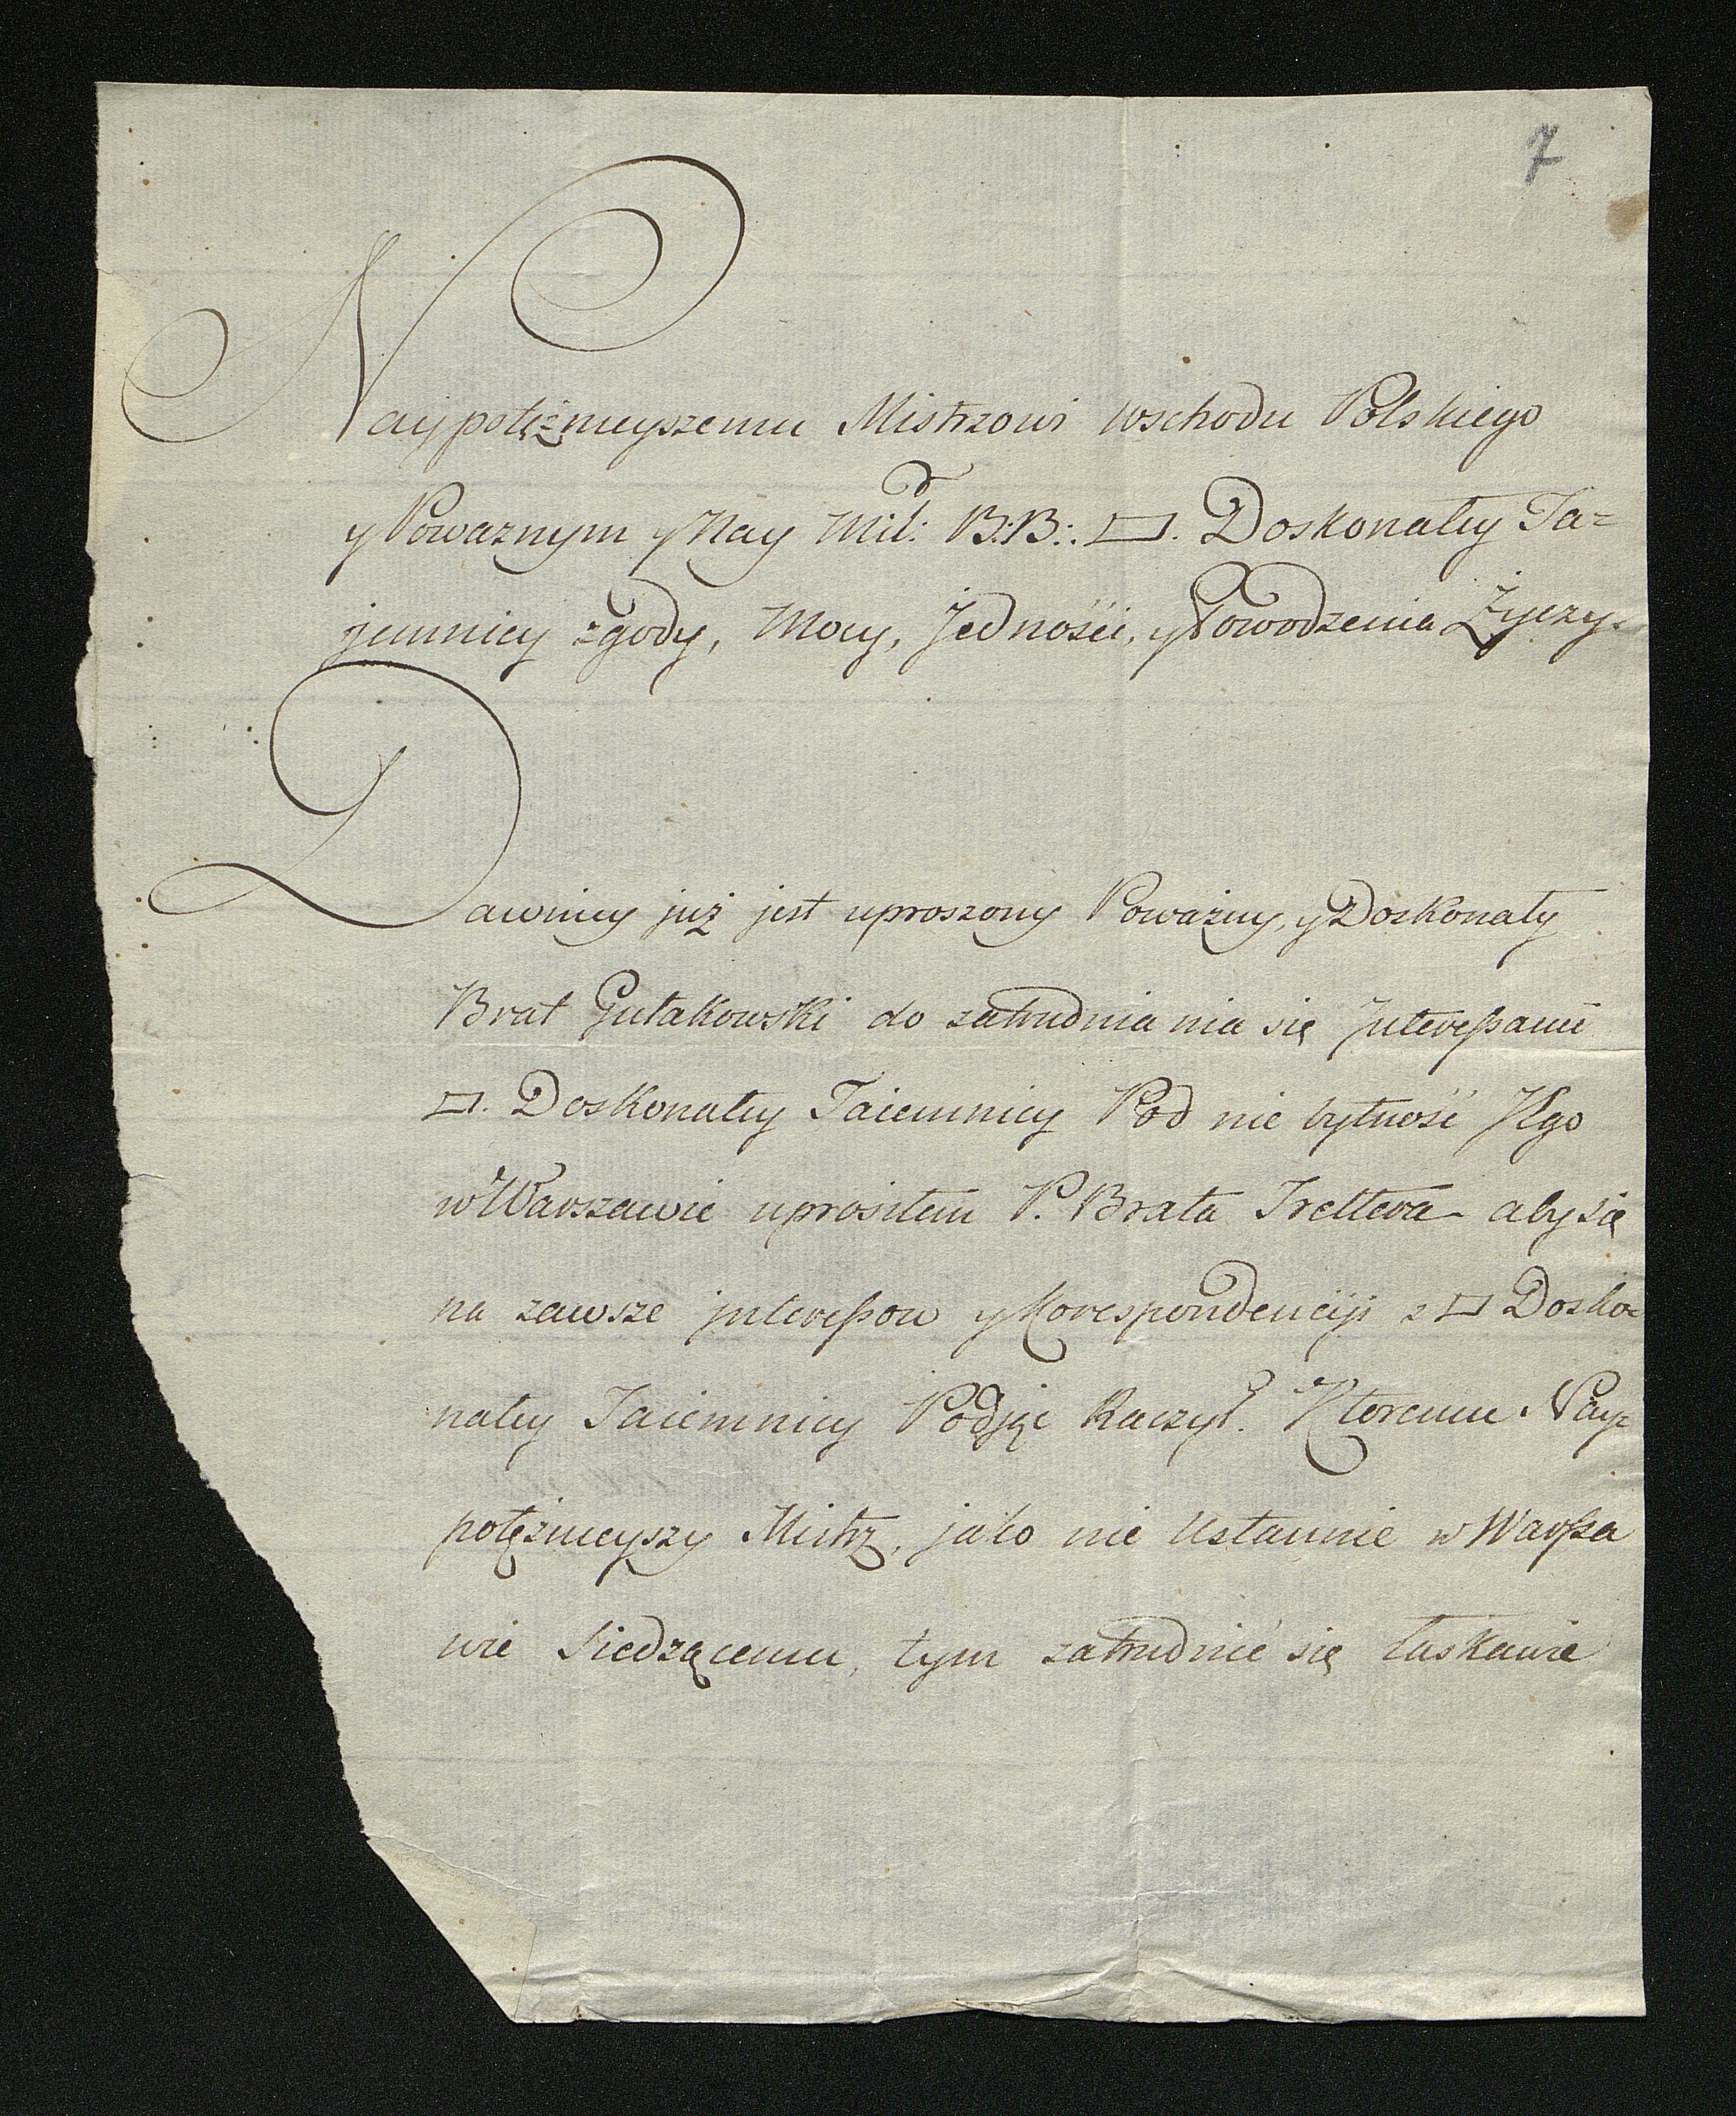 7
Naypotężnieyszemu Mistrzowi wschodu Polskiego
y Powaznym y Nay Mił: B:B:. ▭. Doskonałey Ta=
jemnicy zgody, Mocy, Jedności, y Powodzenia Życzy.
Dawniey już jest uproszony Poważny, y Doskonały
Brat Gutakowski do zatrudnia nia się Jnteressami
▭. Doskonałey Taiemnicy Pod nie bytność JEgo
w Warszawie uprosiłem P. Brata Trettera aby się
na zawsze jnteressow y Korespondencyji z ▭ Dosko=
nałey Taiemnicy Podjąć Raczył. Ktoremu Nay=
potężnieyszy Mistrz, jako nie Ustannie w Warssa
wie Siedzącemu, tym zatrudnić się łaskawie